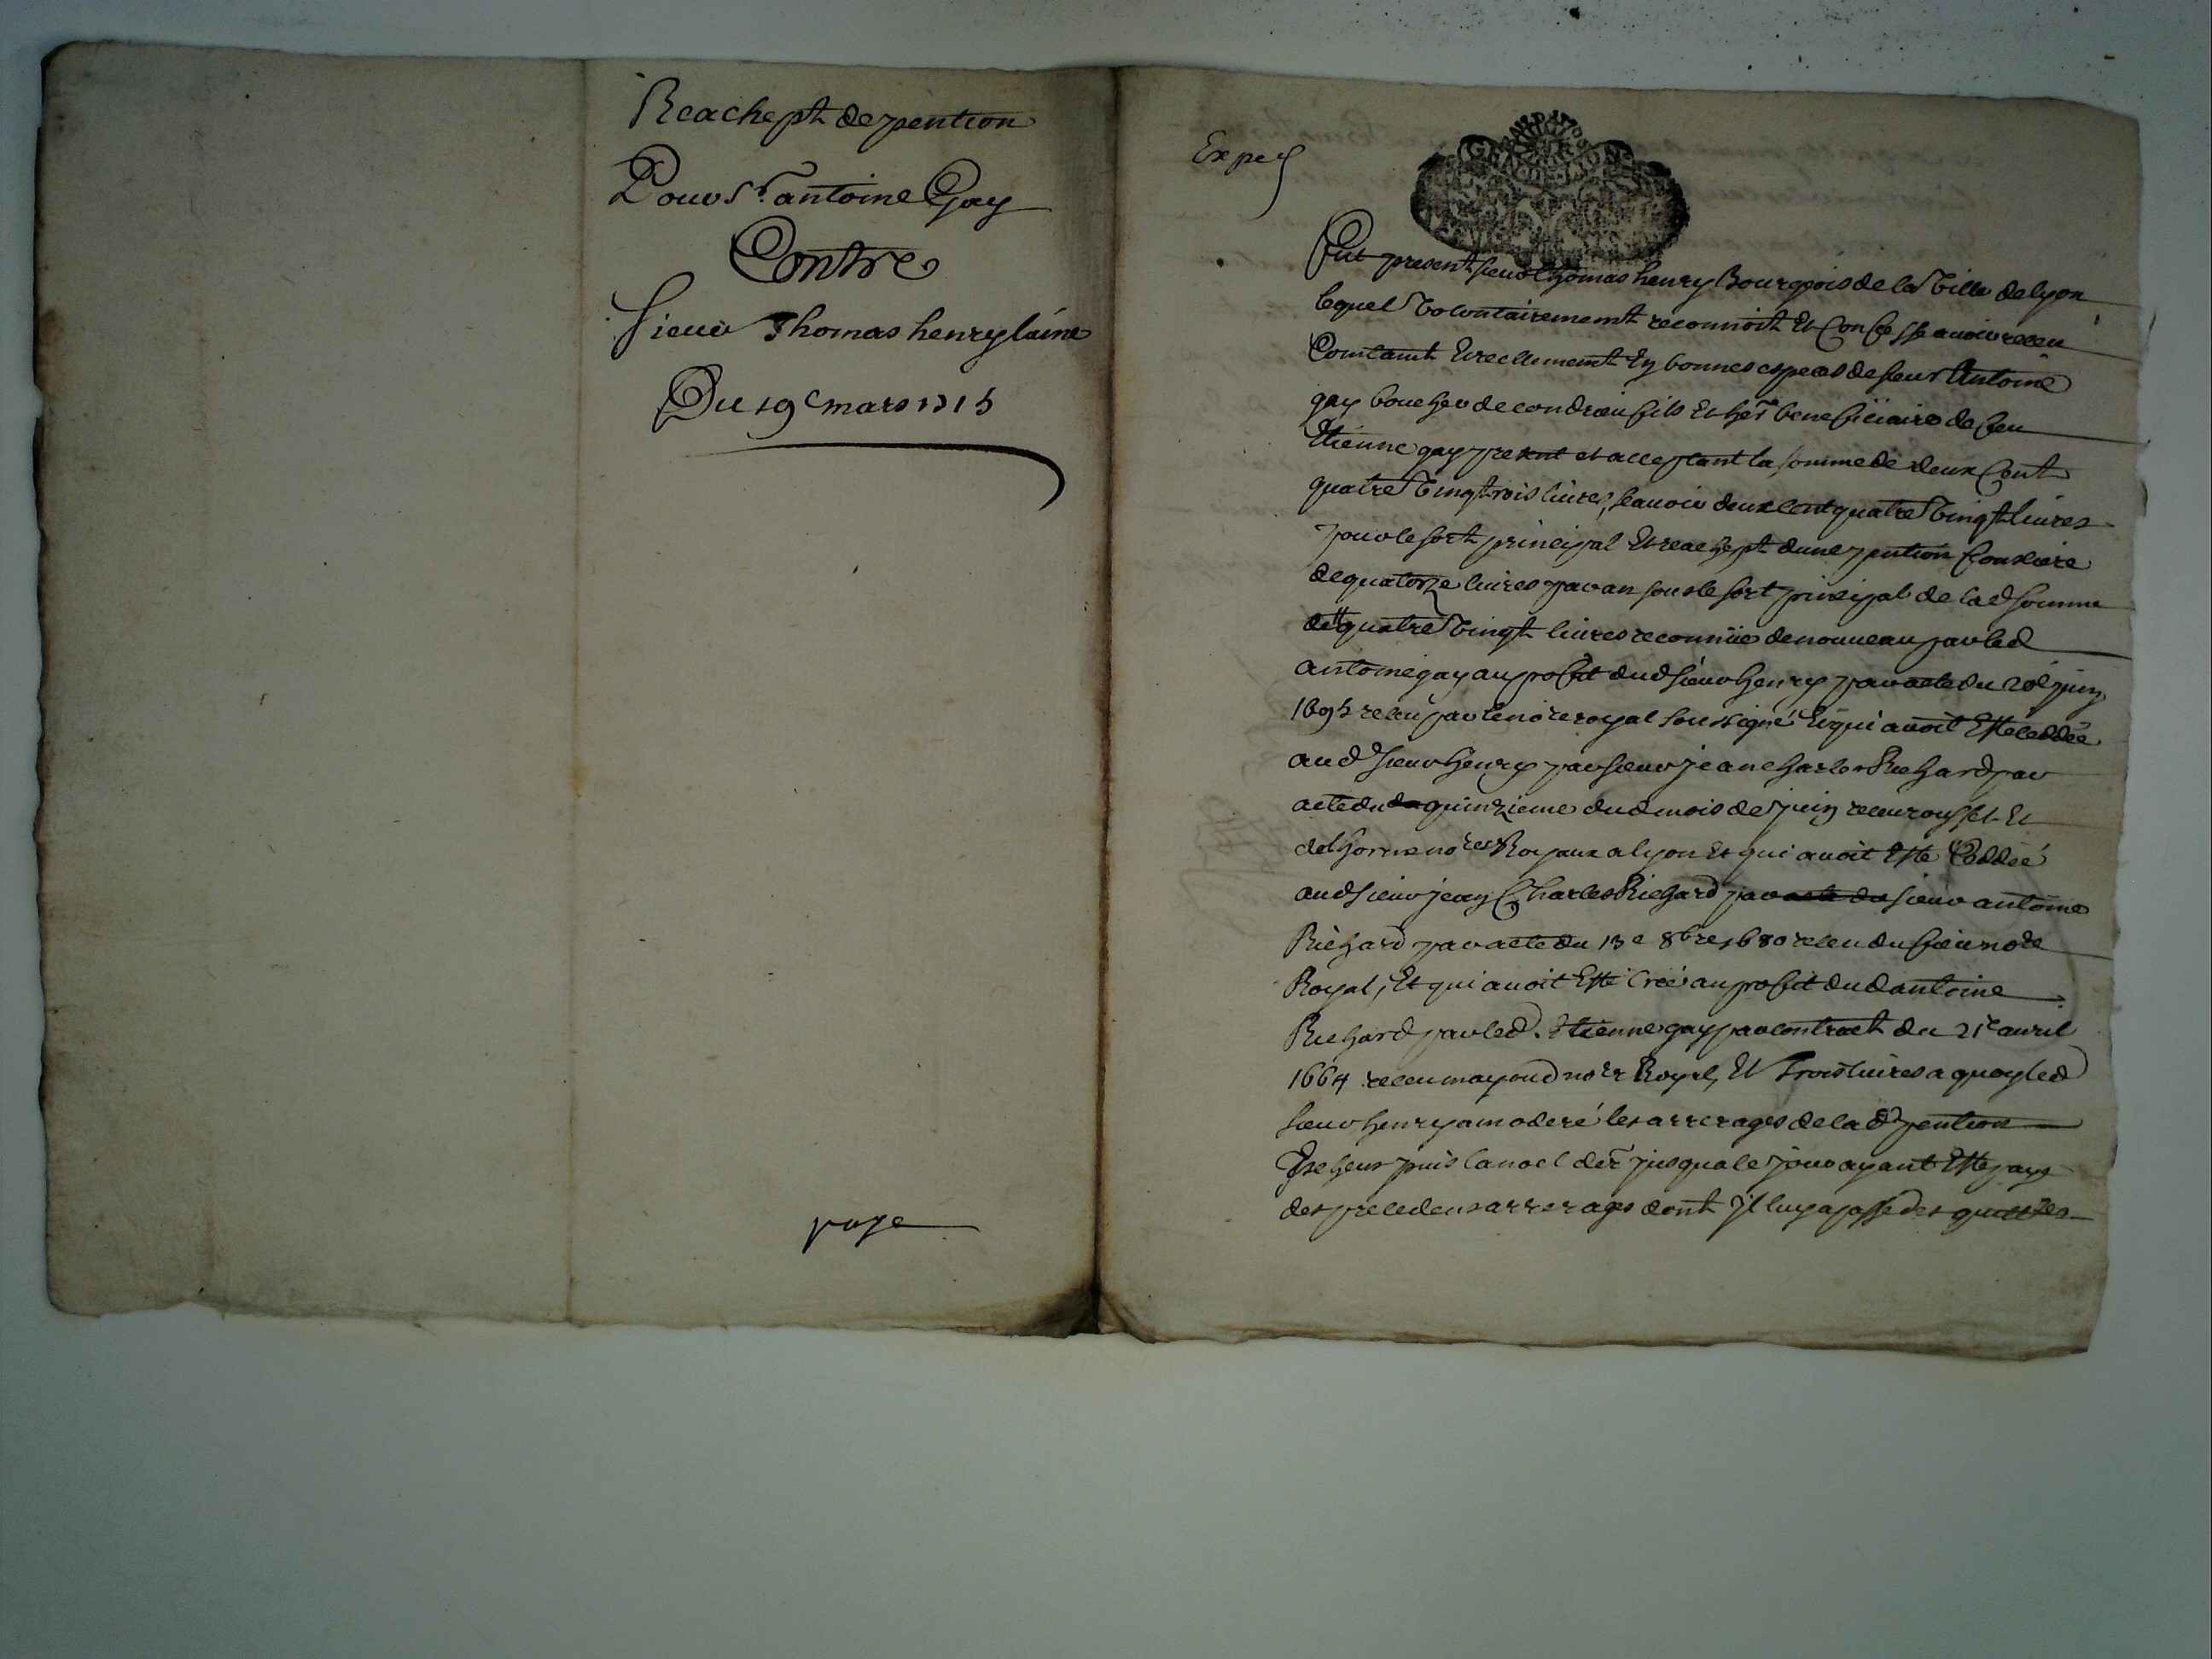 Reachept de pention
Pour Sr. antoine Gay
Contre
Sieur Thomas henry láine
Du 19e mars 1715
paye
Exped
Fut present sieur thomas henry Bourgeois de la Ville de lyon
lequel Volontairement reconnoit Et Confesse avoir receu
Comtamt Ereellement En bonnes especes de sieur Antoine
gay boucher de condrieu fils Et her. beneficiaire de feu
Etienne gay present et acceptant la somme de deux Cent
quatre Vingt trois livres, scavoir deux cent quatre Vingt livres
pour le sort principal Et reachept dune pention fonsiere
de quatorze livres par an sous le sort principal de lad somme
de quatre Vingt livres reconnüe de nouveau par led
antoine gay au profit dud sieur henry par acte du 20e juin
1695 receu par le nore royal soussigné Et qui avoit Esté ceddée
aud sieur henry par sieur jean charles Richard par
acte du quinzieme dud mois de juin receu rousset Et
delhorme nores Royaux a lyon Et qui avoit Esté Ceddée
aud sieur jean Charles Richard par acte du sieur antoine
Richard par acte du 13e 8bre 1680 receu du nore
Royal, Et qui avoit Esté Créé au profit dud antoine
Richard par led. Etienne gay par contract du 21e avril
1664 receu nore Royal, Et trois livres a quoy led
sieur henry a moderé les arrerages de lad pention
Escheus puis la noel der jusqua le jour ayant Esté paye
des precedens arrerages dont Jl luy a passé des quittces